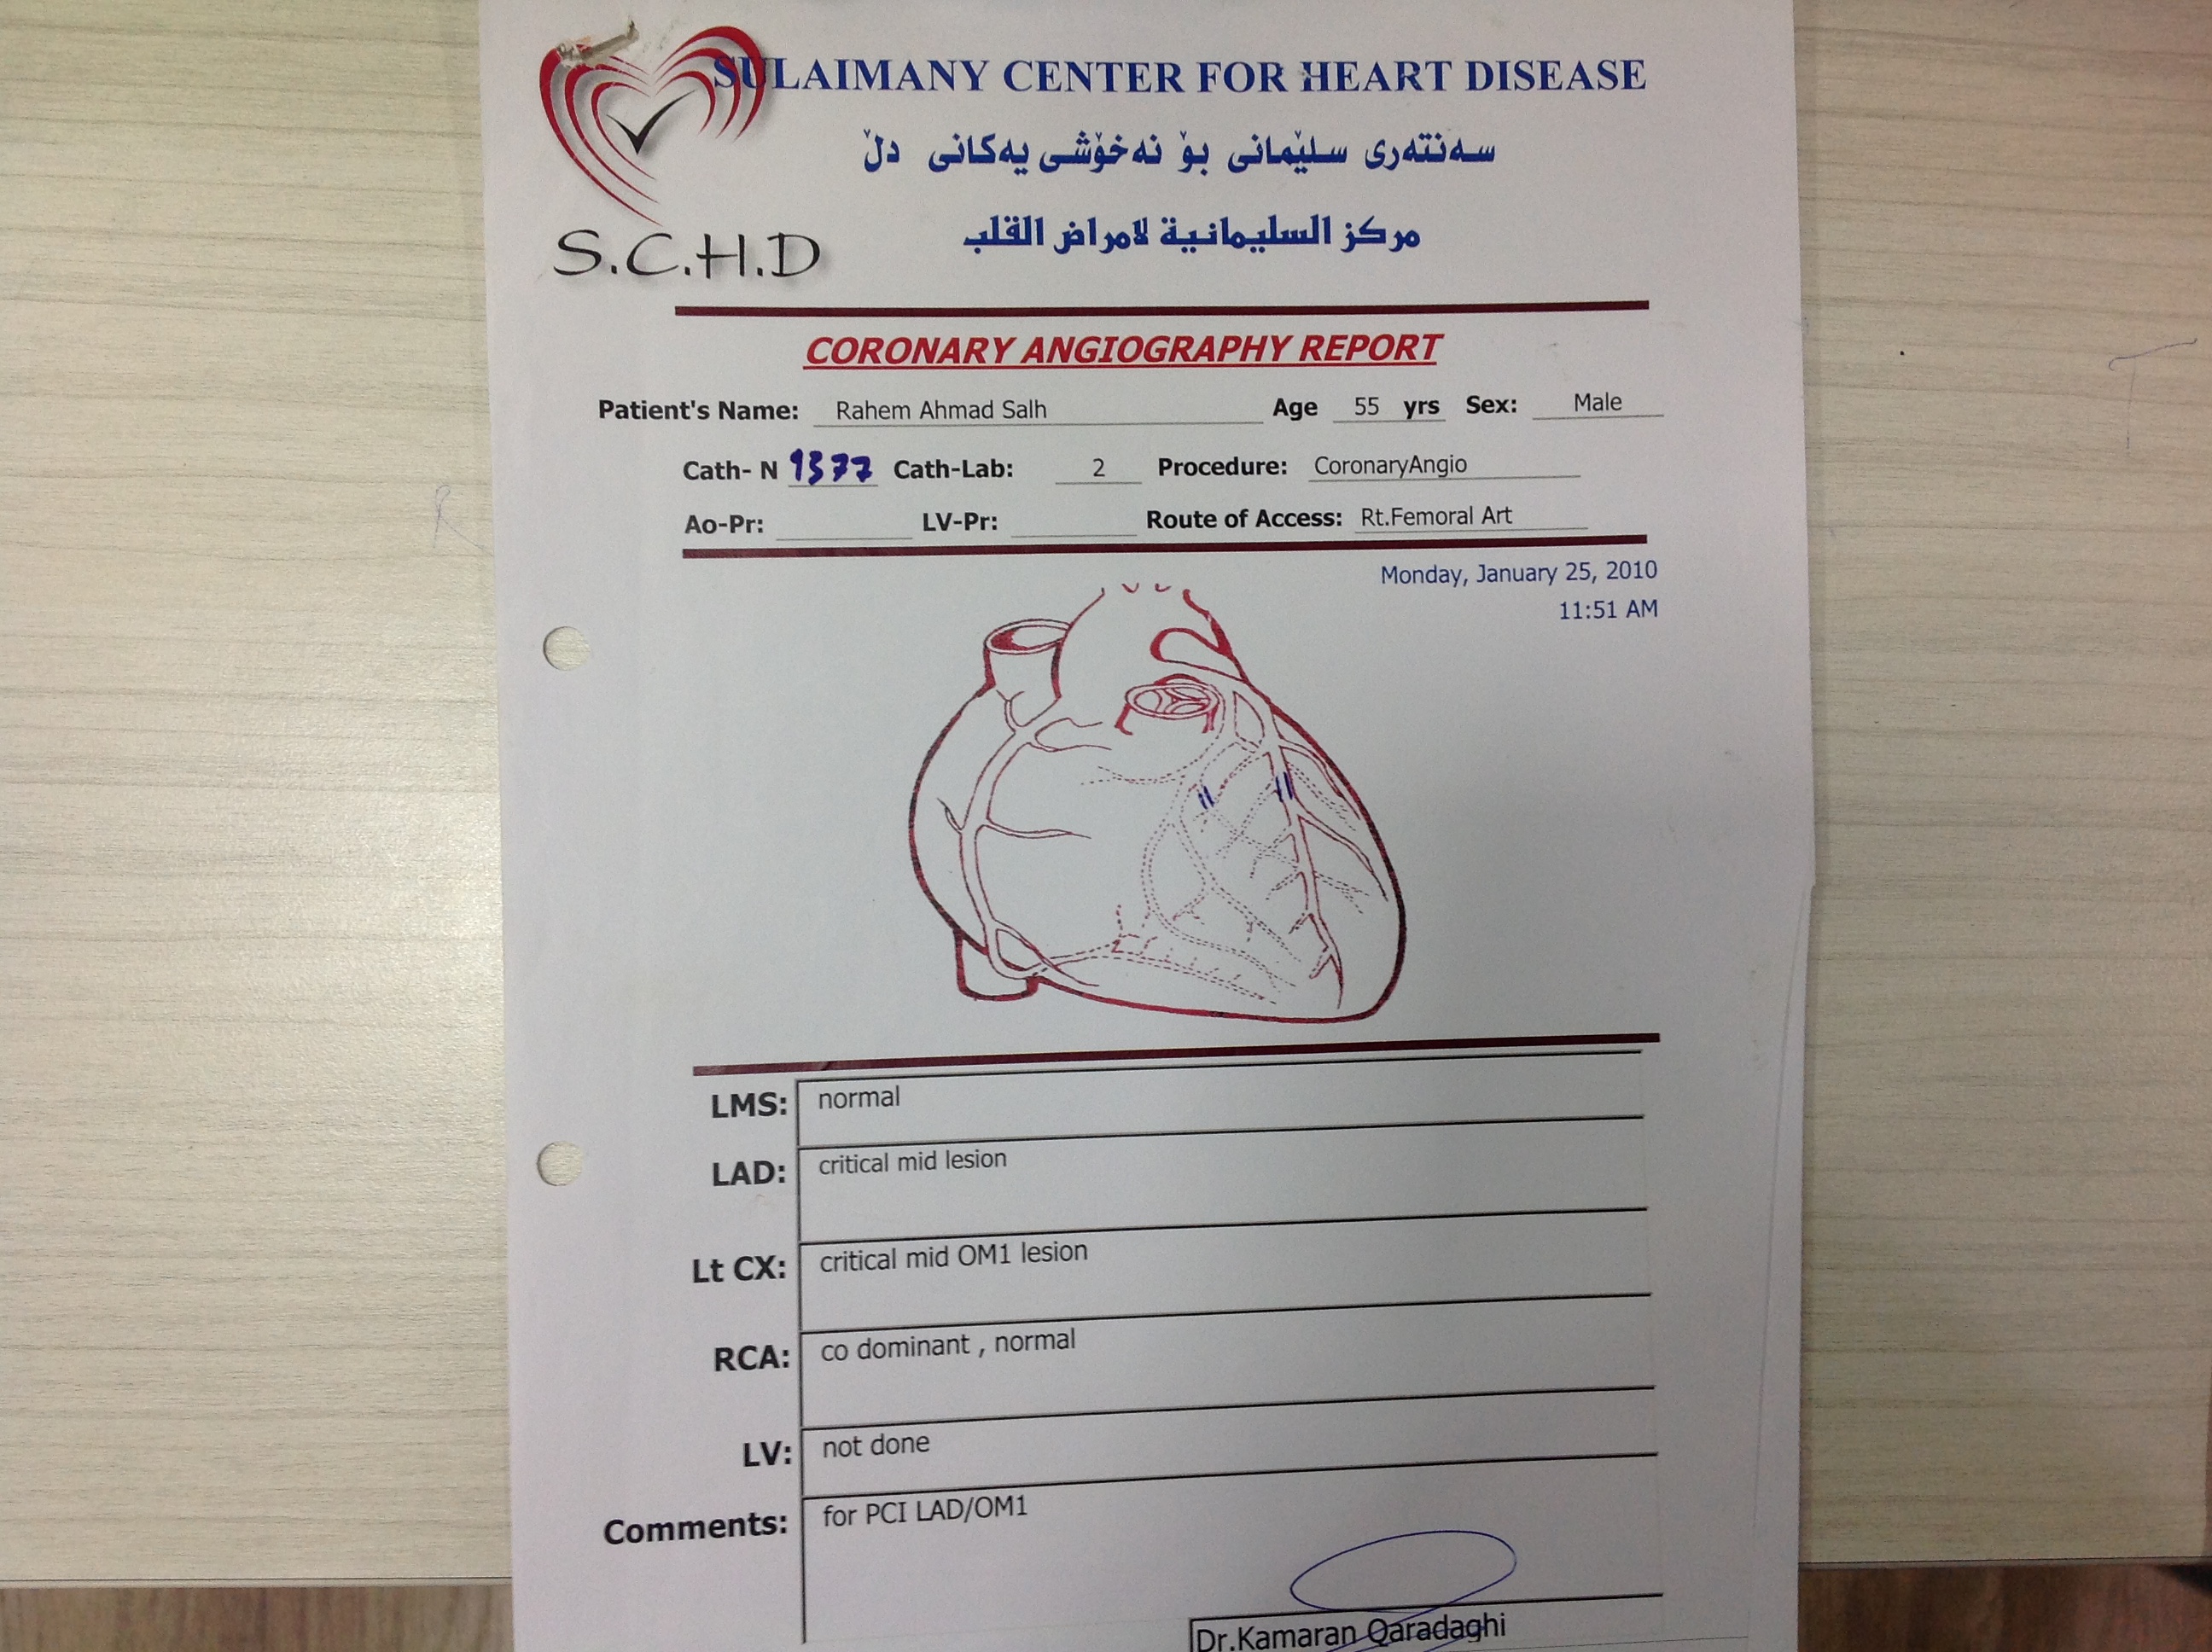 SULAIMANY CENTER FOR HEART DISEASE
سەنتەری سلێمانی بۆ نەخۆشی یەکانی دڵ
مركز السليمانية لامراض القلب
S.C.H.D
CORONARY ANGIOGRAPHY REPORT
Patient's Name: Rahem Ahmad Salh Age 55 yrs Sex: Male
Cath- N 1377 Cath-Lab: 2 Procedure: CoronaryAngio
Ao-Pr: LV-Pr: Route of Access: Rt.Femoral Art
Monday, January 25, 2010
11:51 AM
LMS: normal
LAD: critical mid lesion
Lt CX: critical mid OM1 lesion
RCA: co dominant , normal
LV: not done
Comments: for PCI LAD/OM1
Dr.Kamaran Qaradaghi